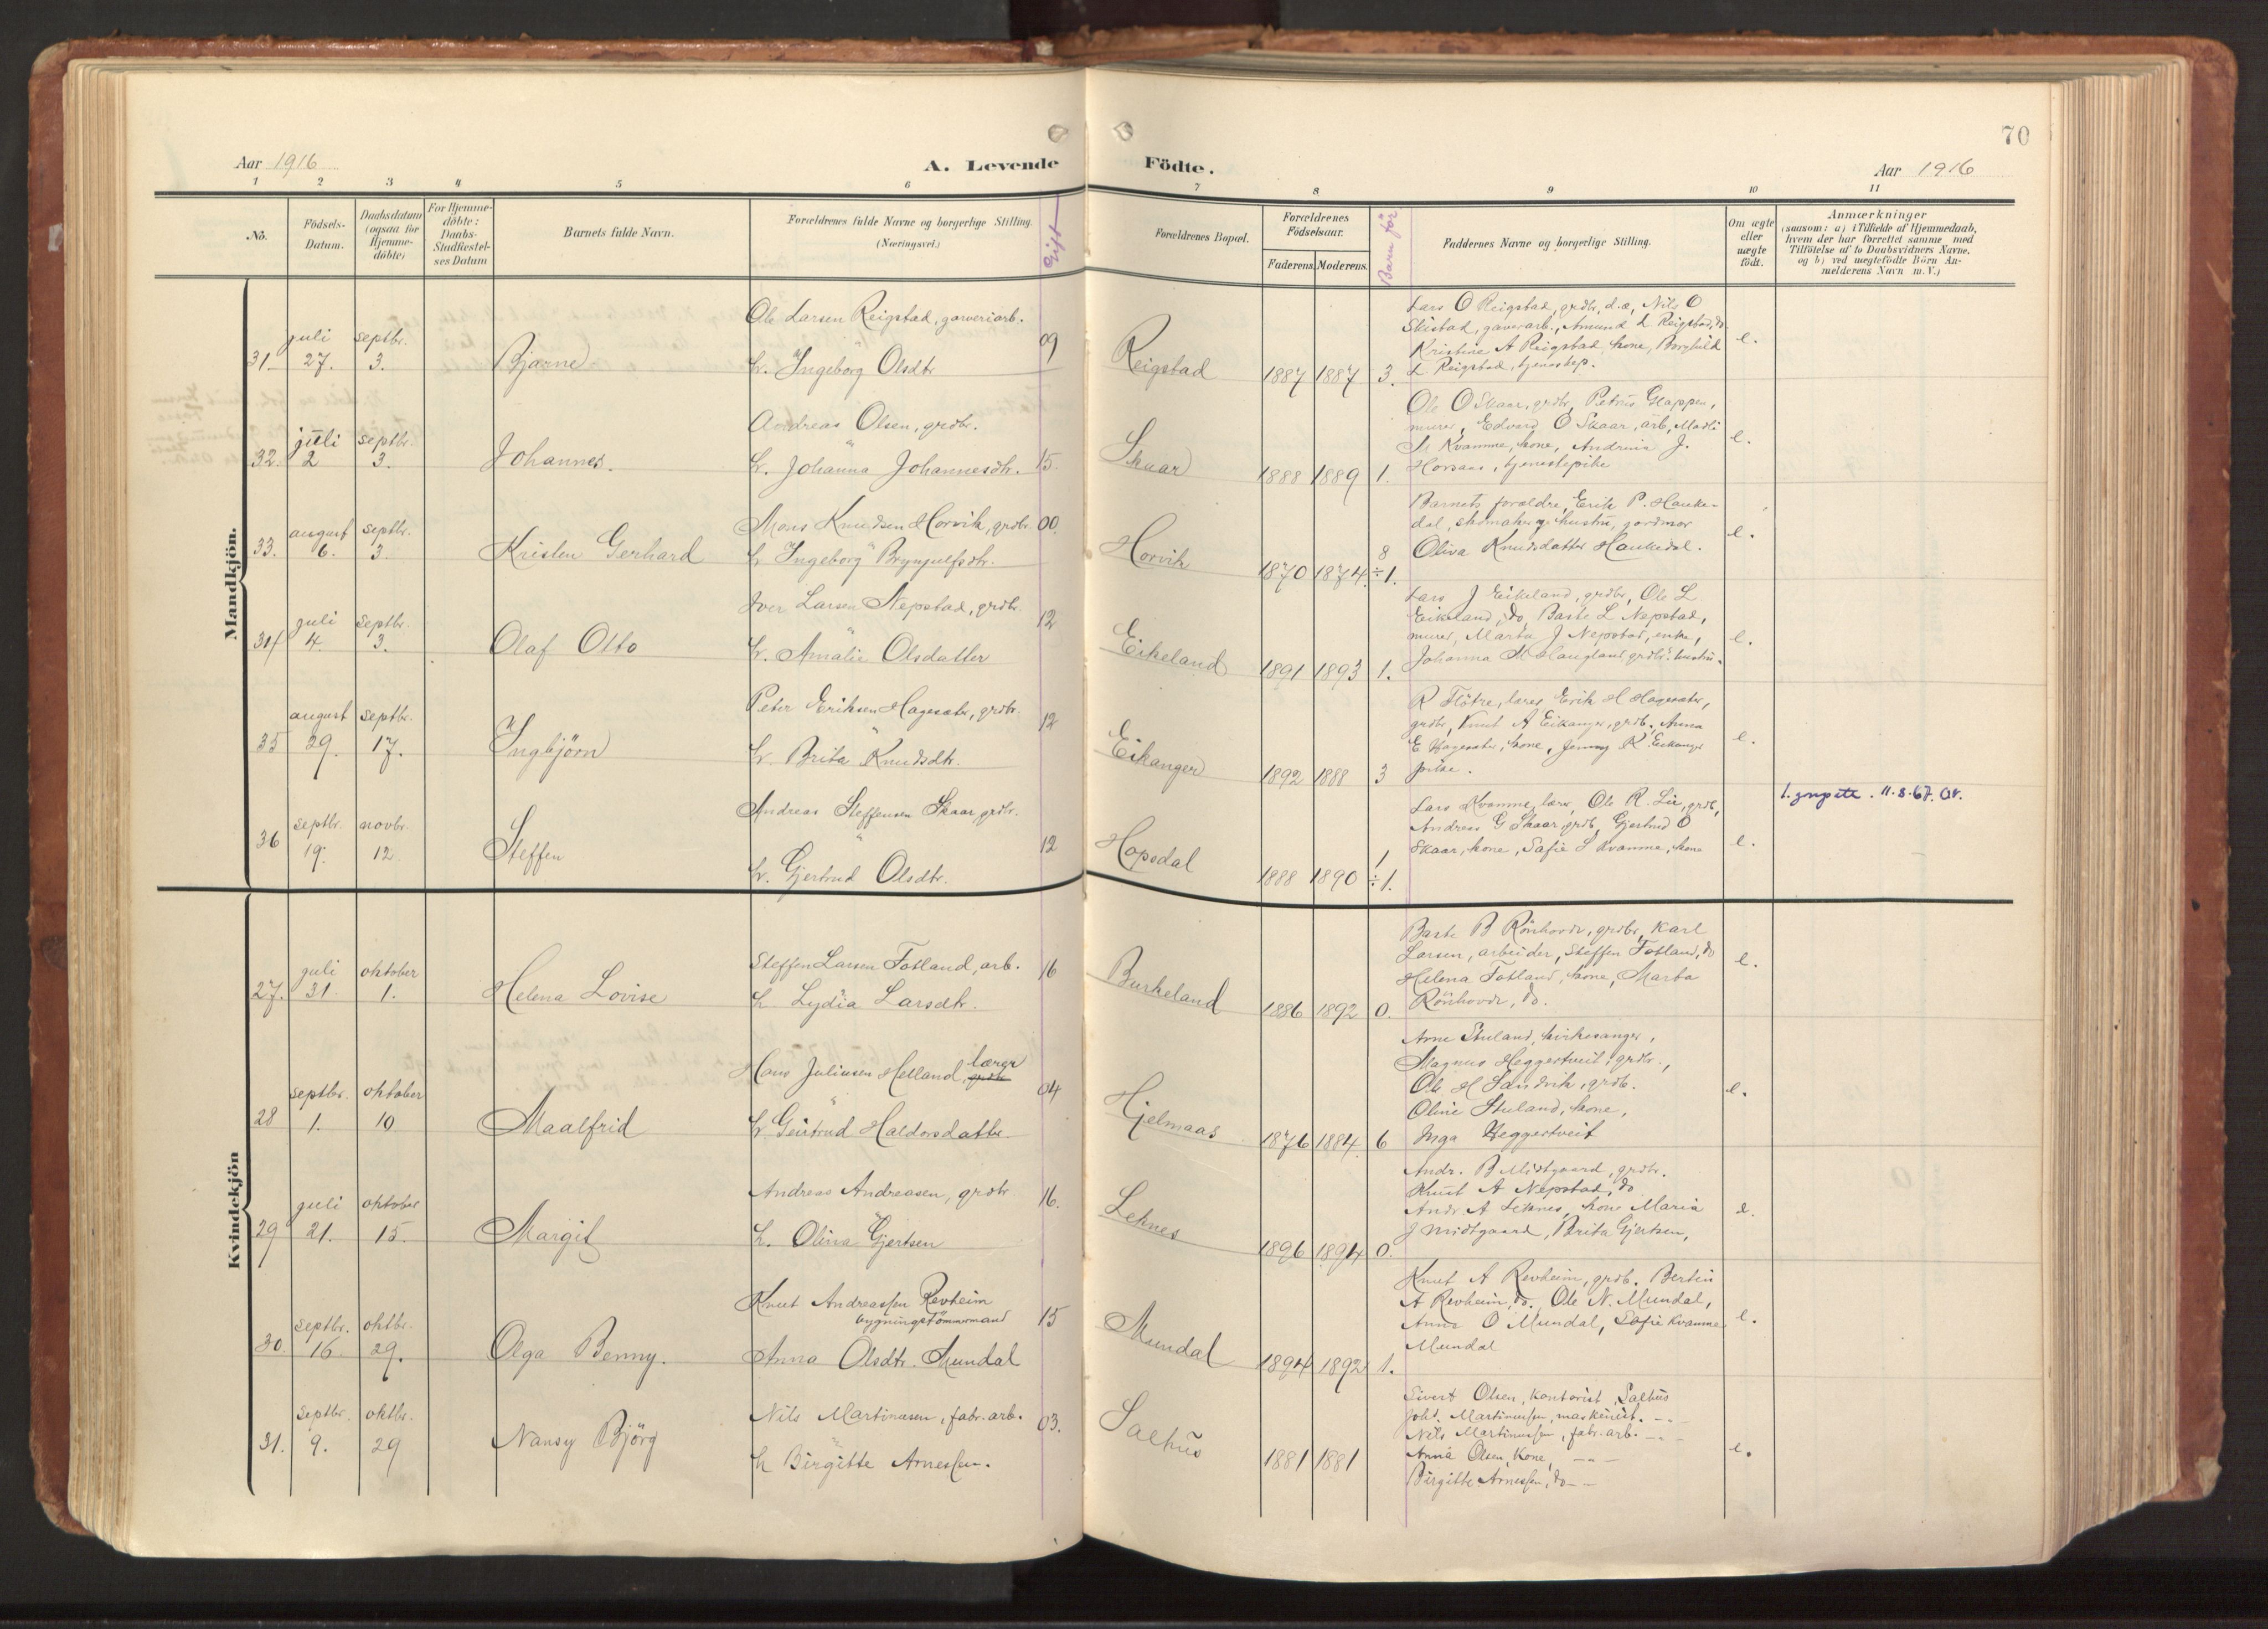 70
Aar 1916
A. Levende Födte.
Aar 1916
1 2 3 4 5 6 7 8 9 10 11
No.
Födsels-
Datum.
Daabsdatum
(ogsaa for
Hjemme-
döbte)
For Hjemme-
döbte:
Daabs-
Stadfæstel-
ses Datum
Barnets fulde Navn.
Forældrenes fulde Navne og borgerlige Stilling.
(Næringsvei.)
Gift
Forældrenes Bopæl.
Forældrenes
Födselsaar.
Faderens. Moderens.
Barn för
Faddernes Navne og borgerlige Stilling.
Om ægte
eller
uægte
födt.
Anmærkninger
(saasom: a) i Tilfælde af Hjemmedaab,
hvem der har forrettet samme med
Tilföielse af to Daabsvidners Navne.
og b) ved uægtefödte Börn An-
melderens Navn m.V.)
Mandkjön.
31. juli 27. septbr. 3. Bjarne
Ole Larsen Reigstad, garveriarb.
h. Ingeborg Olsdtr
09 Reigstad 1887 1887 3.
Lars O Reigstad, grdbr, d.æ, Nils O
garverarb., Amund L Reigstad, do
Kristine A Reigstad kone, Borghild
L Reigstad, tjenestep.
e.
32. juli 2 septbr. 3. Johannes.
Andreas Olsen, grdbr.
h. Johanna Johannesdtr.
15. Skaar 1888 1889 1.
Ole O Skaar, grdbr, Petrus Glappen,
murer, Edvard O Skaar, arb, Madli
Kvamme, kone, Andrina J.
Horsaas, tjenestepike
e.
33. august 6. septbr. 3. Kristen Gerhard
Mons Knudsen Horvik, grdbr.
h Ingeborg Brynjulfsdtr.
00. Horvik 1870 1874. 8 ÷ 1.
Barnets forældre, Erik P. Hauke-
dal, skomaker og hustru, jordmor
Oliva Knudsdatter Haukedal.
e.
34 juli 4. septbr. 3. Olaf Otto
Iver Larsen Nepstad, grdbr.
h. Amalie Olsdatter
12 Eikeland 1891 1893 1.
Lars J Eikeland, grdbr, Ole L
Eikeland, do, Baste L Nepstad,
murer, Marta J Nepstad, enke,
Johanna M grdbr. hustru.
e.
35 august 29. septbr. 17. Ingbjörn
Peter Eriksen Hagesæter, grdbr.
h. Brita Knudsdtr.
12 Eikanger 1892 1888 3
R Flötre, lærer, Erik H Hagesæter,
grdbr, Knut A Eikanger, grdb, Anna
E Hagesæter, kone, Jenny K Eikanger
pike.
e.
36 septbr. 19. novbr. 12. Steffen
Andreas Steffensen Skaar, grdbr.
h. Gjertrud Olsdtr.
12 Hopsdal 1888 1890 1 ÷ 1.
Lars Kvamme, lærer, Ole R. Lie, grdb,
Andreas G Skaar, grdb, Gjertrud O
Skaar, kone, Safie S Kvamme, kone
e.
11.8.67.
Kvindekjön
27. juli 31. oktober 1. Helena Lovise
Steffen Larsen Fotland, arb.
h Lydia Larsdtr.
16 Burkeland 1886 1892 0.
Baste B Rönhovde, grdbr, Karl
Larsen, arbeider, Steffen Fotland, do
Helena Fotland, kone, Marta
Rönhovde, do.
e.
28 septbr. 1. oktober 10 Maalfrid
Hans Juliusen Helland, grdbr lærer
h Geirtrud Haldorsdatter
04 Hjelmaas 1876 1884. 6
Arne Stuland, kirkesanger,
Magnus Heggertveit, grdbr.,
Ole H Sandvik, grdb.
Oline Stuland, kone,
Inga Heggertveit
e.
29 juli 21. oktober 15. Margit
Andreas Andreasen, grdbr
h. Olina Gjertsen
16. Leknes 1896 1894 0.
Andr. B Midtgaard, grdbr.
Knut A Nepstad, do
Andr A Leknes, kone Maria
J Midtgaard, Brita Gjertsen,
e.
30. septbr. 16. oktbr. 29. Olga Benny.
Knut Andreassen Revheim
bygningstömmermand
Anna Olsdtr. Mundal
15 Mundal 1894 1892 1.
Knut A Revheim, grdb. Bertin
A Revheim, do. Ole N. Mundal,
Anna O Mundal, Sofie Kvamme
Mundal
e.
31. septbr. 9. oktbr. 29 Nansy Björg
Nils Martinusen, fabr. arb.
h Birgitte Arnessen.
03. Salhus 1881 1881
Sivert Olsen, kontorist, Salhus
Joht. Martinussen, maskinist. -"-
Nils Martinussen, fabr. arb. -"-
Anna Olsen, Kone, -"-
Birgitte Arnessen, do -"-
e.